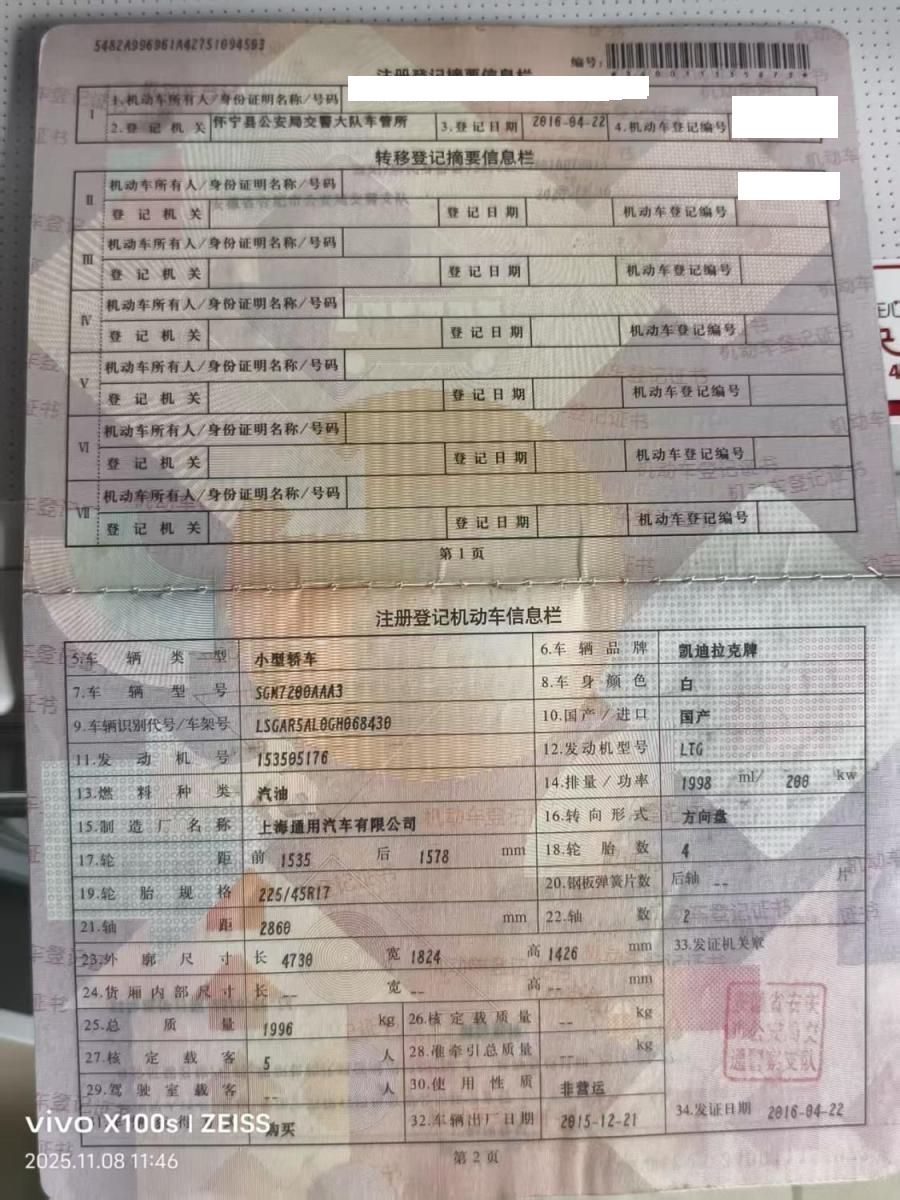 5482A996961A42751094593
编号:
注册登记摘要信息栏
I 1.机动车所有人/身份证明名称/号码
2.登记机关 怀宁县公安局交警大队车管所 3.登记日期 2016-04-22 4.机动车登记编号
转移登记摘要信息栏
II 机动车所有人/身份证明名称/号码
登记机关 登记日期 机动车登记编号
III 机动车所有人/身份证明名称/号码
登记机关 登记日期 机动车登记编号
IV 机动车所有人/身份证明名称/号码
登记机关 登记日期 机动车登记编号
V 机动车所有人/身份证明名称/号码
登记机关 登记日期 机动车登记编号
VI 机动车所有人/身份证明名称/号码
登记机关 登记日期 机动车登记编号
VII 机动车所有人/身份证明名称/号码
登记机关 登记日期 机动车登记编号
第1页
注册登记机动车信息栏
5.车辆类型 小型轿车 6.车辆品牌 凯迪拉克牌
7.车辆型号 SGM7200AAA3 8.车身颜色 白
9.车辆识别代号/车架号 LSGAR5AL0GH068430 10.国产/进口 国产
11.发动机号 153505176 12.发动机型号 LTG
13.燃料种类 汽油 14.排量/功率 1998 ml/ 200 kw
15.制造厂名称 上海通用汽车有限公司 16.转向形式 方向盘
17.轮距 前 1535 后 1578 mm 18.轮胎数 4
19.轮胎规格 225/45R17 20.钢板弹簧片数 后轴 -- 片
21.轴距 2860 mm 22.轴数 2
23.外廓尺寸 长 4730 宽 1824 高 1426 mm 33.发证机关章
24.货厢内部尺寸 长 -- 宽 -- 高 -- mm
25.总质量 1996 kg 26.核定载质量 -- kg
27.核定载客 5 人 28.准牵引总质量 -- kg
29.驾驶室载客 -- 人 30.使用性质 非营运
购买 32.车辆出厂日期 2015-12-21 34.发证日期 2016-04-22
第2页
vivo X100s | ZEISS
2025.11.08 11:46